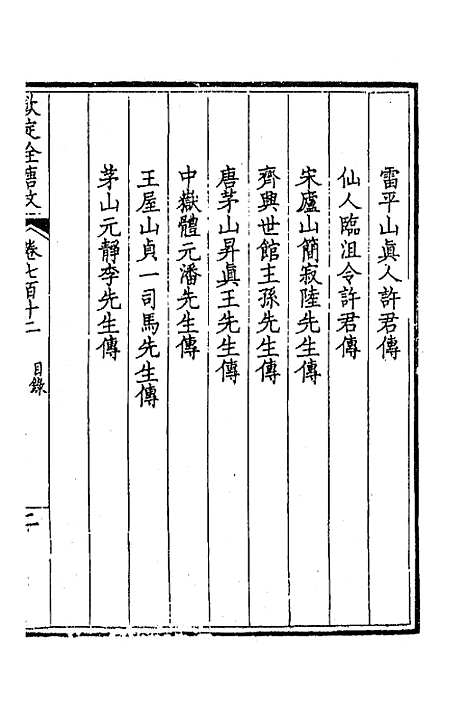 雷平山眞人許君傳
仙人臨沮令許君傳
宋廬山簡寂陸先生傳
齊興世館主孫先生傳
唐茅山昇眞王先生傳
中嶽體元潘先生傳
王屋山貞一司馬先生傳
茅山元靜李先生傳
欽定全唐文 卷七百十二 目錄 二